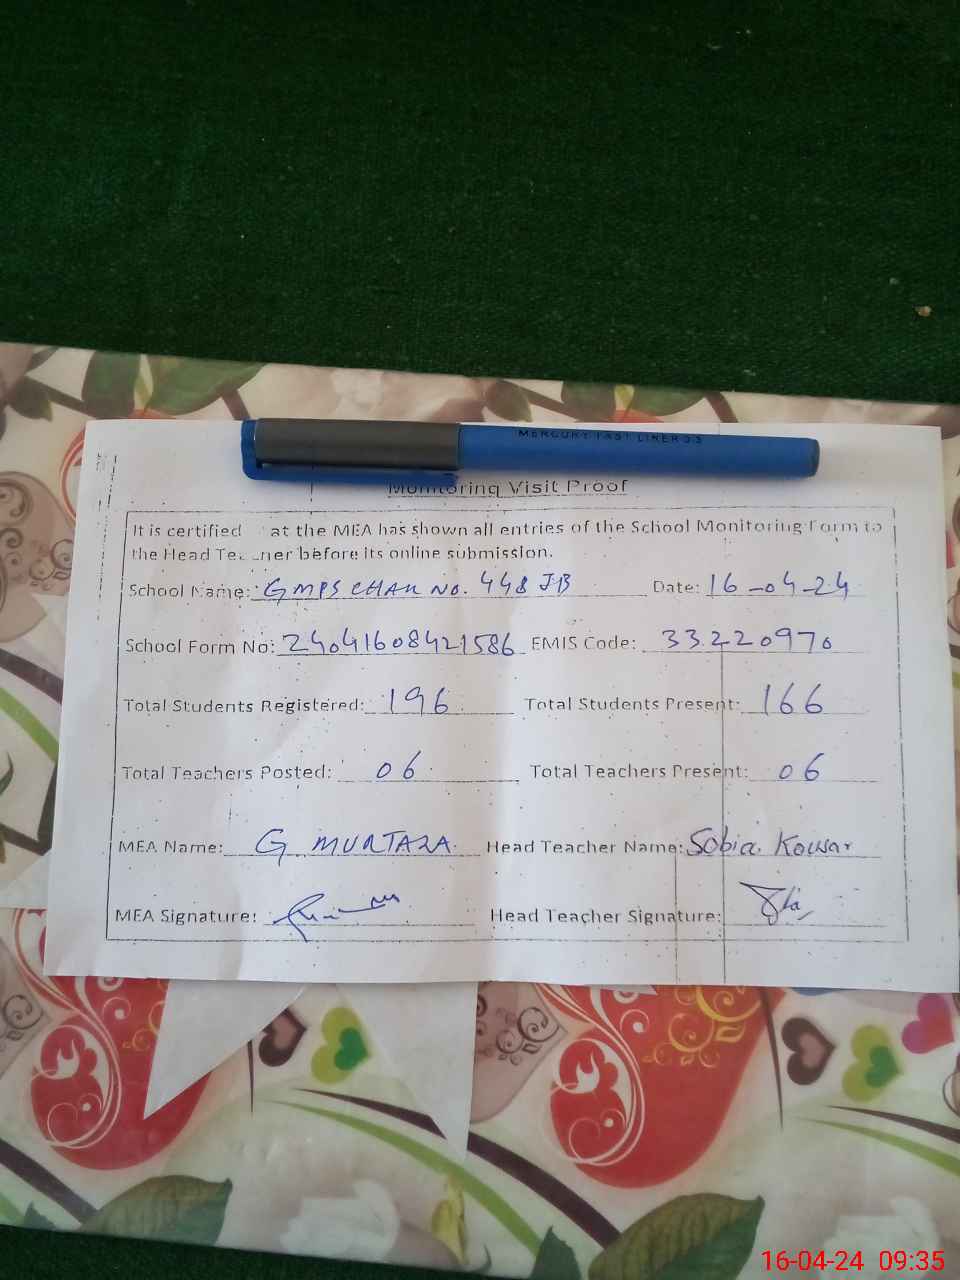 MERCURY FAST LINER 0.5
Monitoring Visit Proof
It is certified at the MEA has shown all entries of the School Monitoring Form to
the Head Teacher before its online submission.
School Name: GMPS CHAK NO. 448 JB Date: 16-04-24
School Form No: 24041608421586 EMIS Code: 33220970
Total Students Registered: 196 Total Students Present: 166
Total Teachers Posted: 06 Total Teachers Present: 06
MEA Name: G MURTAZA Head Teacher Name: Sobia Kowsar
MEA Signature: Head Teacher Signature:
16-04-24 09:35